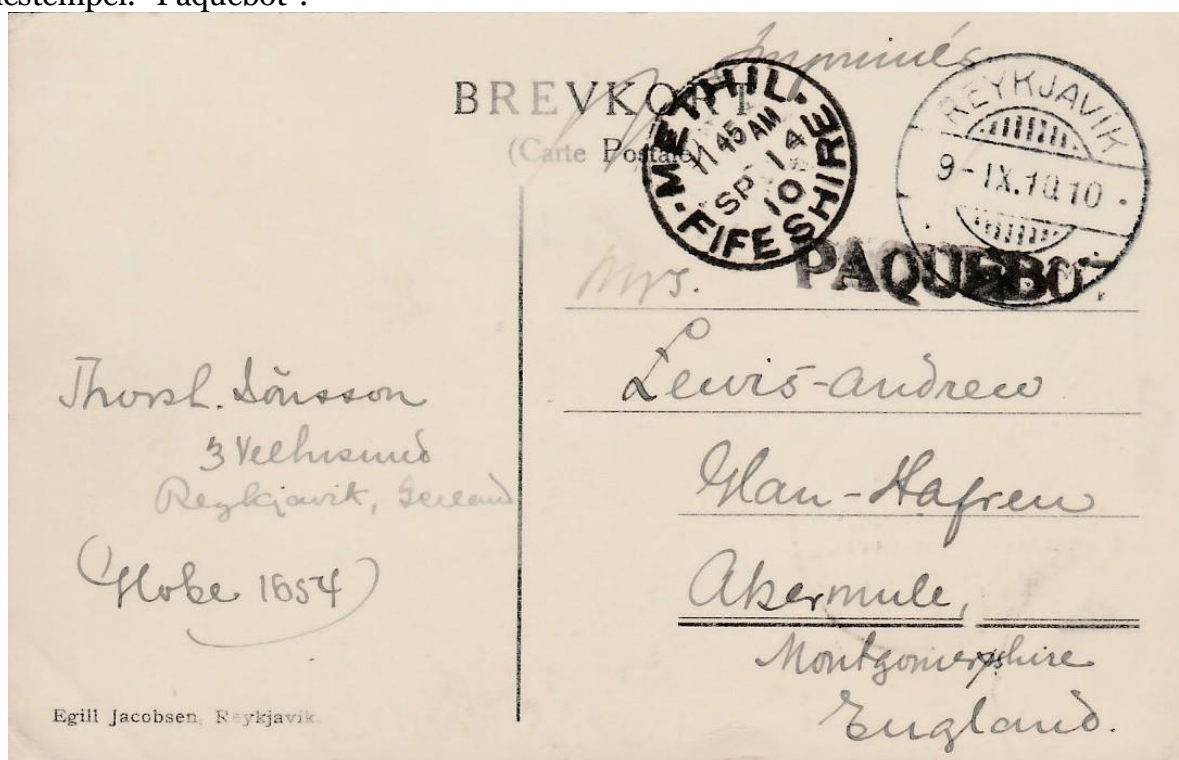 nestempel. "Paquebot".
Imprimés
BREVKORT
(Carte Postale)
METHIL · FIFESHIRE
11 45 AM
SP 14
10
REYKJAVIK
9-IX.10 10
PAQUEBOT
Mrs.
Lewis-Andrew
Glan-Hafren
Abermule,
Montgomeryshire
England.
Thorsh. Jónsson
3 Velhusund
Reykjavik, Iceland
(Globe 1654)
Egill Jacobsen, Reykjavik.